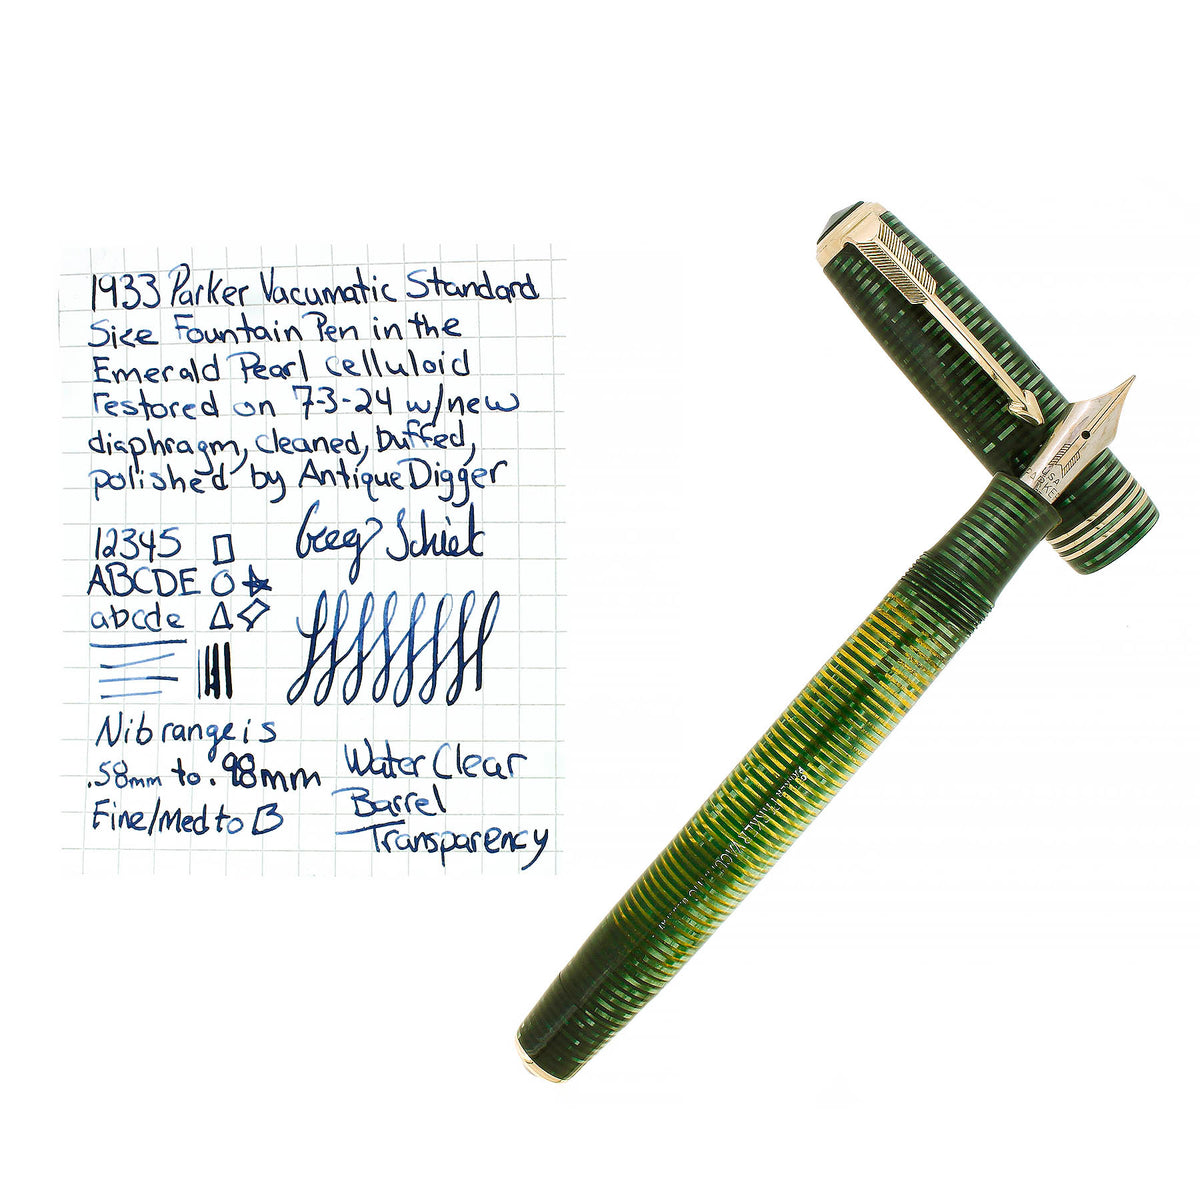 1933 Parker Vacumatic Standard
Size Fountain Pen in the
Emerald Pearl celluloid
restored on 7-3-24 w/new
diaphragm, cleaned, buffed,
polished by AntiqueDigger
12345
ABCDE
abcde
Nib range is
.58mm to .98mm
Fine/Med to B
Water Clear
Barrel
Transparency
USA
PARKER